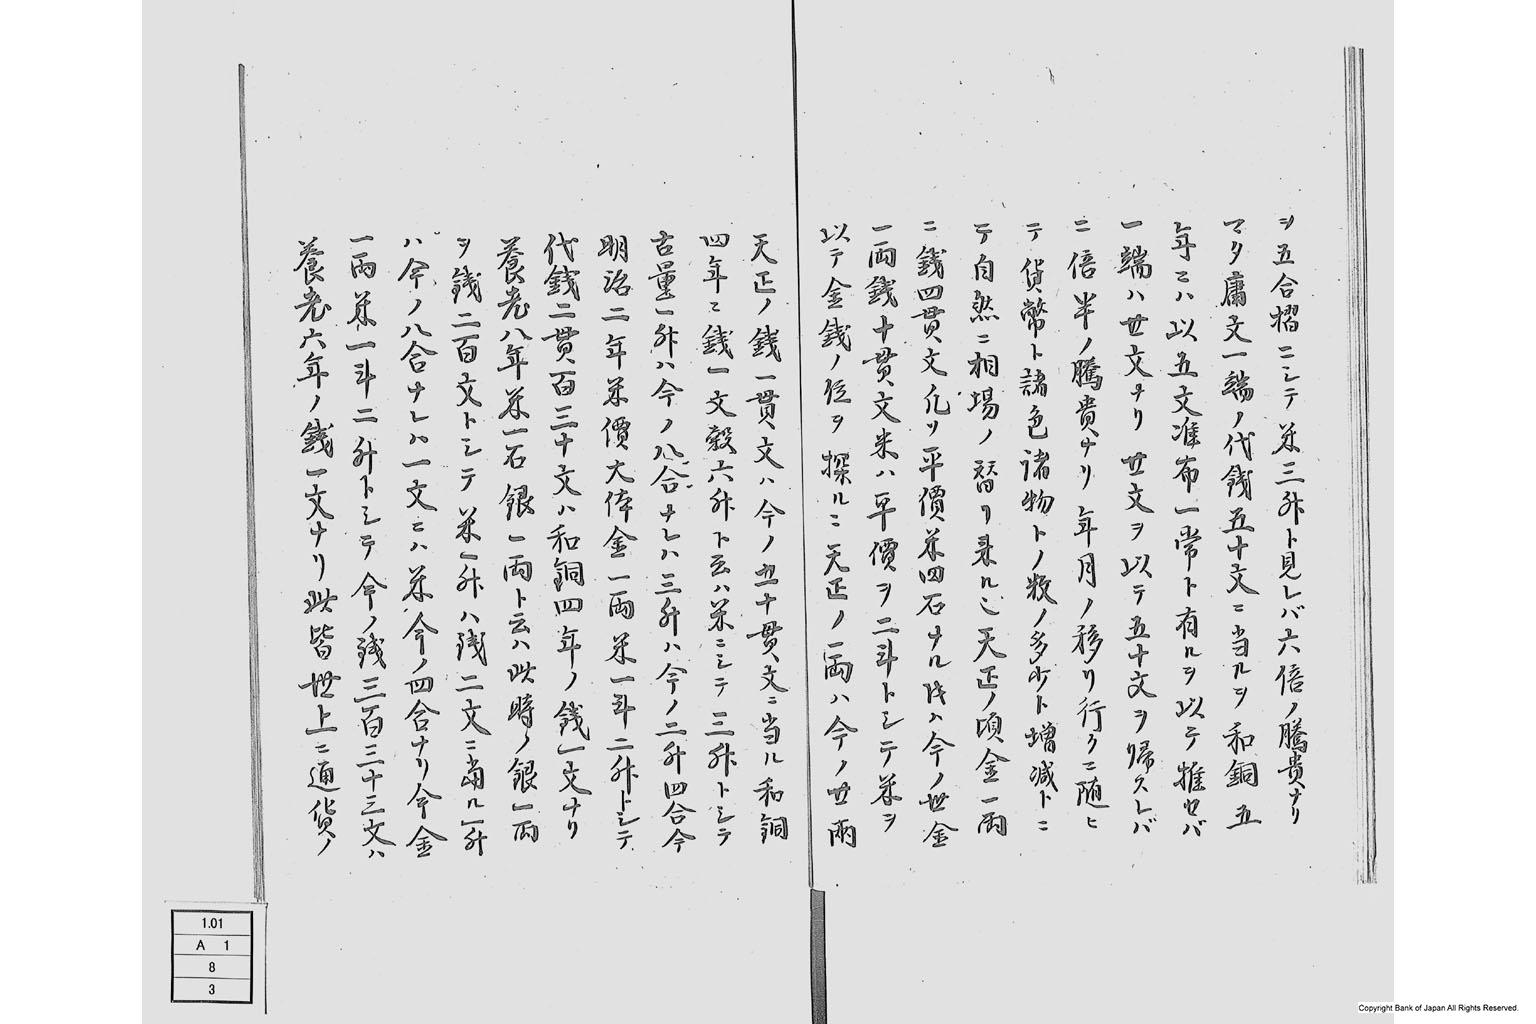 ヲ五合摺ニシテ米三升ト見レバ六倍ノ騰貴ナリ
マタ庸文一端ノ代銭五十文ニ当ルヲ和銅五
年ニハ以五文准布一常ト有ルヲ以テ推セバ
一端ハ廿文ナリ廿文ヲ以テ五十文ヲ帰スレバ
二倍半ノ騰貴ナリ年月ノ移リ行クニ随ヒ
テ貨幣ト諸色諸物トノ数ノ多少ト増減トニ
テ自然ニ相場ノ替リ来ルニ天正ノ頃金一両
ニ銭四貫文凡ソ平價米四石ナル時ハ今ノ世金
一両銭十貫文米ハ平價ヲ二斗トシテ米ヲ
以テ金銭ノ位ヲ探ルニ天正ノ一両ハ今ノ廿両
天正ノ銭一貫文ハ今ノ五十貫文ニ当ル和銅
四年ニ銭一文穀六升ト云ハ米ニシテ三升トシテ
古量一升ハ今ノ八合ナレハ三升ハ今ノ二升四合今
明治二年米價大体金一両米一斗二升トシテ
代銭二貫百三十文ハ和銅四年ノ銭一文ナリ
養老八年米一石銀一両ト云ハ此時ノ銀一両
ヲ銭二百文トシテ米一升ハ銭二文ニ当ル一升
ハ今ノ八合ナレハ一文ニハ米今ノ四合ナリ今金
一両米一斗二升トシテ今ノ銭三百三十三文ハ
養老六年ノ銭一文ナリ此皆世上ニ通貨ノ
1.01
A 1
8
3
Copyright Bank of Japan All Rights Reserved.